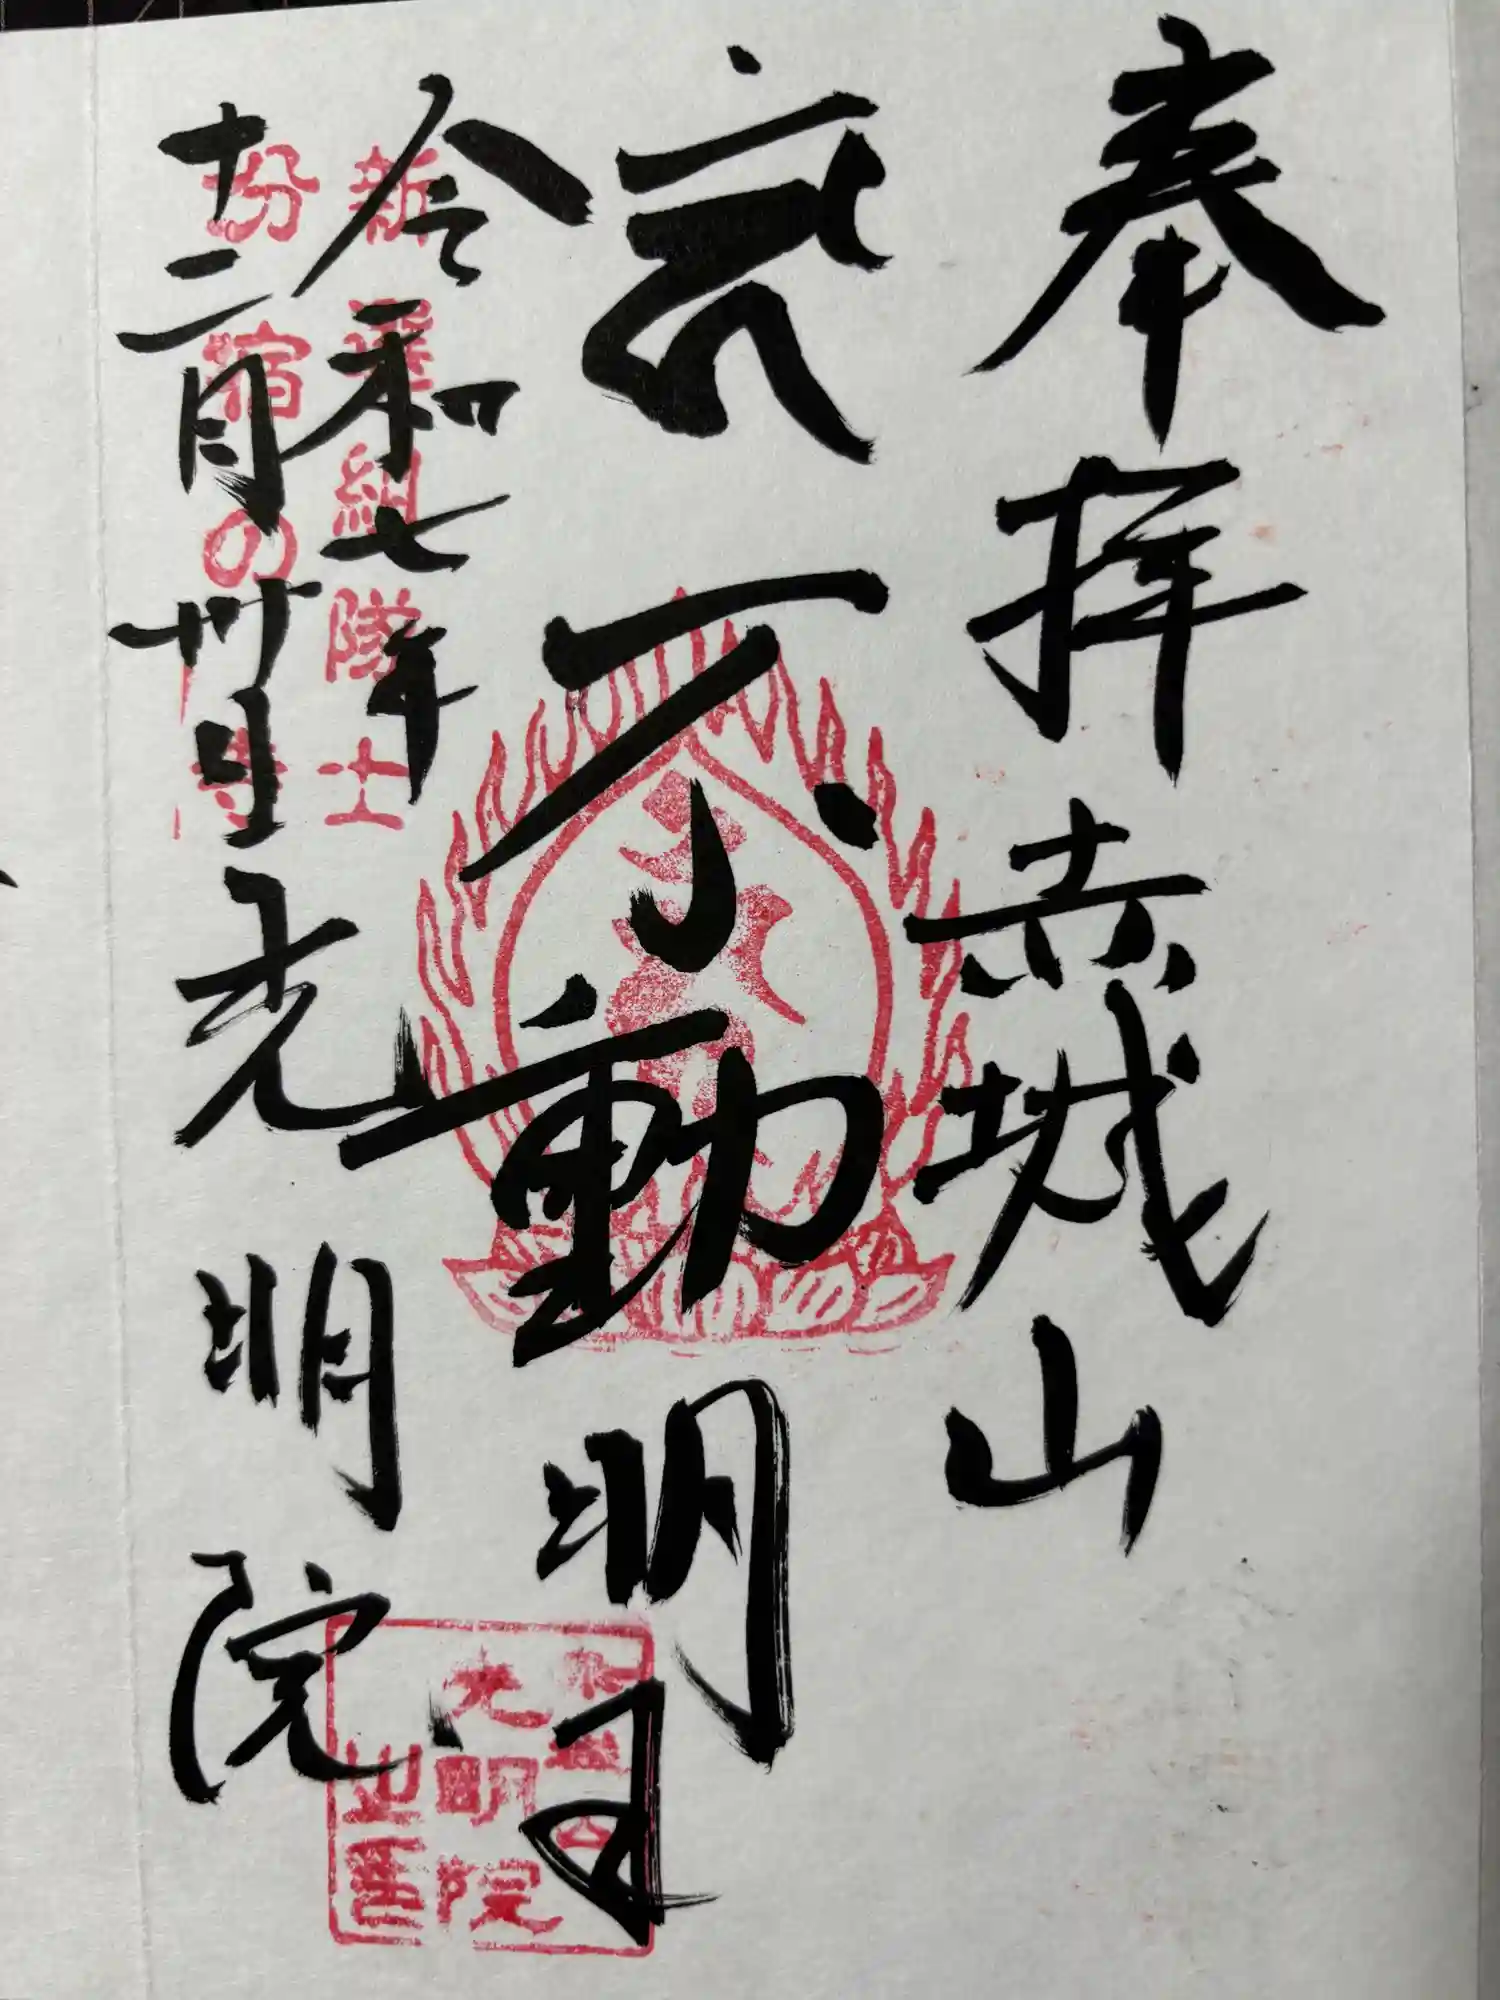 奉拝 赤城山
不動明王
令和七年
十二月卅日 光明院
新選組隊士
分宿の
光明院